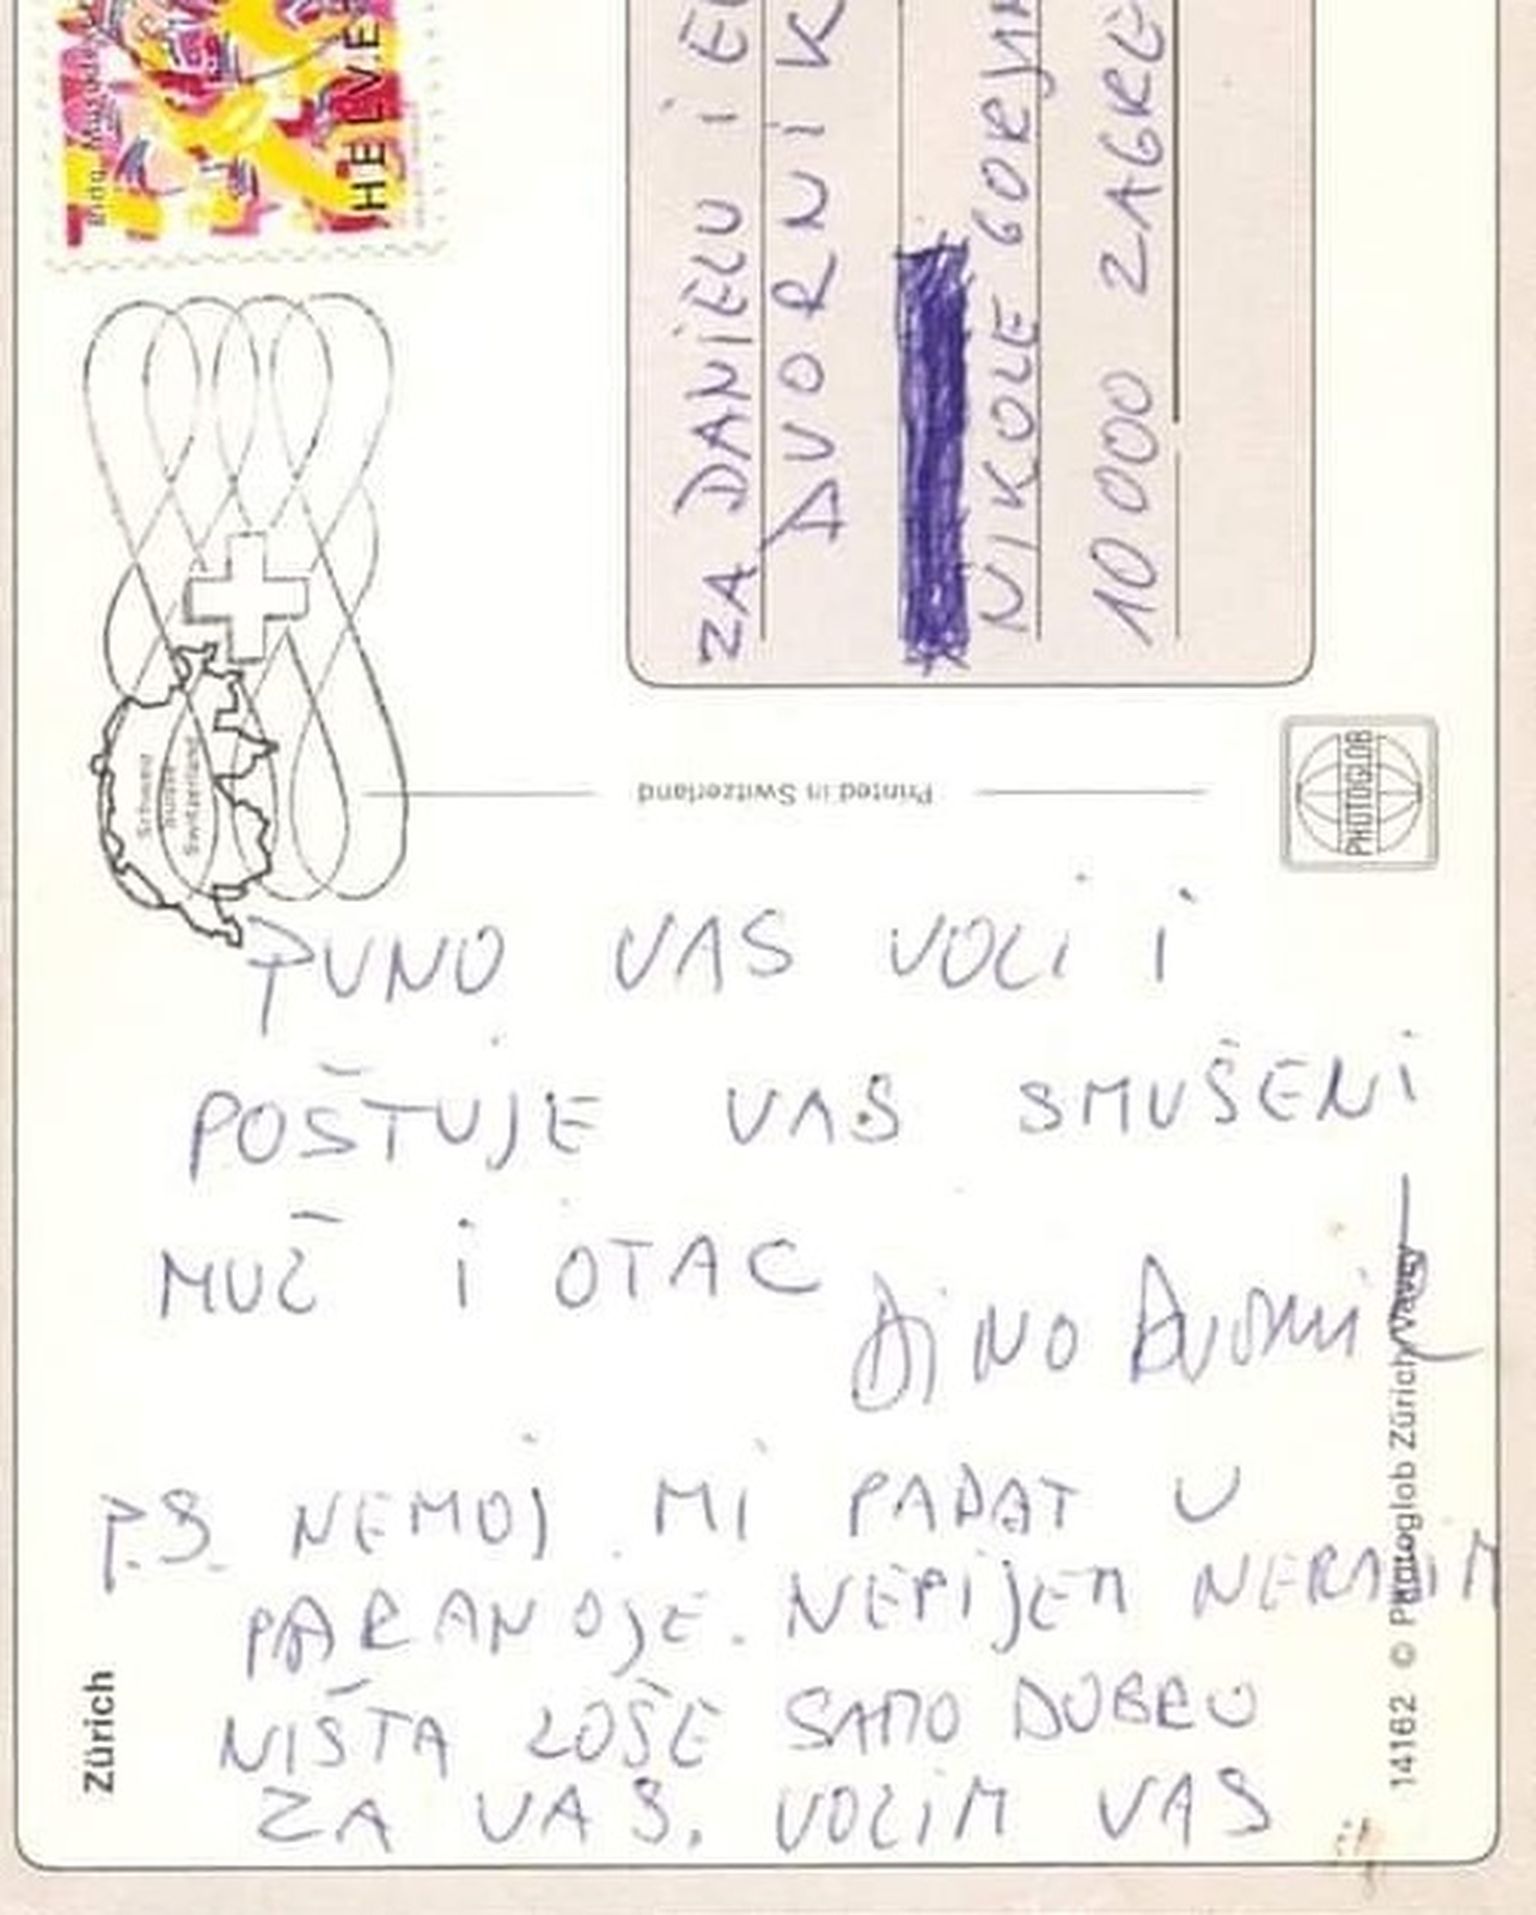 HELVE
ZA DANIELU I
DVORNIK
NIKOLE
10000 ZAGRE
Schweiz
Suisse
Switzerland
Printed in Switzerland
PHOTOGLOB
PUNO VAS VOLI I
POŠTUJE VAŠ SMUŠENI
MUŽ I OTAC
DINO Dvornik
P.S. NEMOJ MI PADAT U
PARANOJE. NEPIJEM NERADIM
NIŠTA LOŠE SAMO DOBRO
ZA VAS. VOLIM VAS
Zürich
14162 © Photoglob Zürich/Vevey